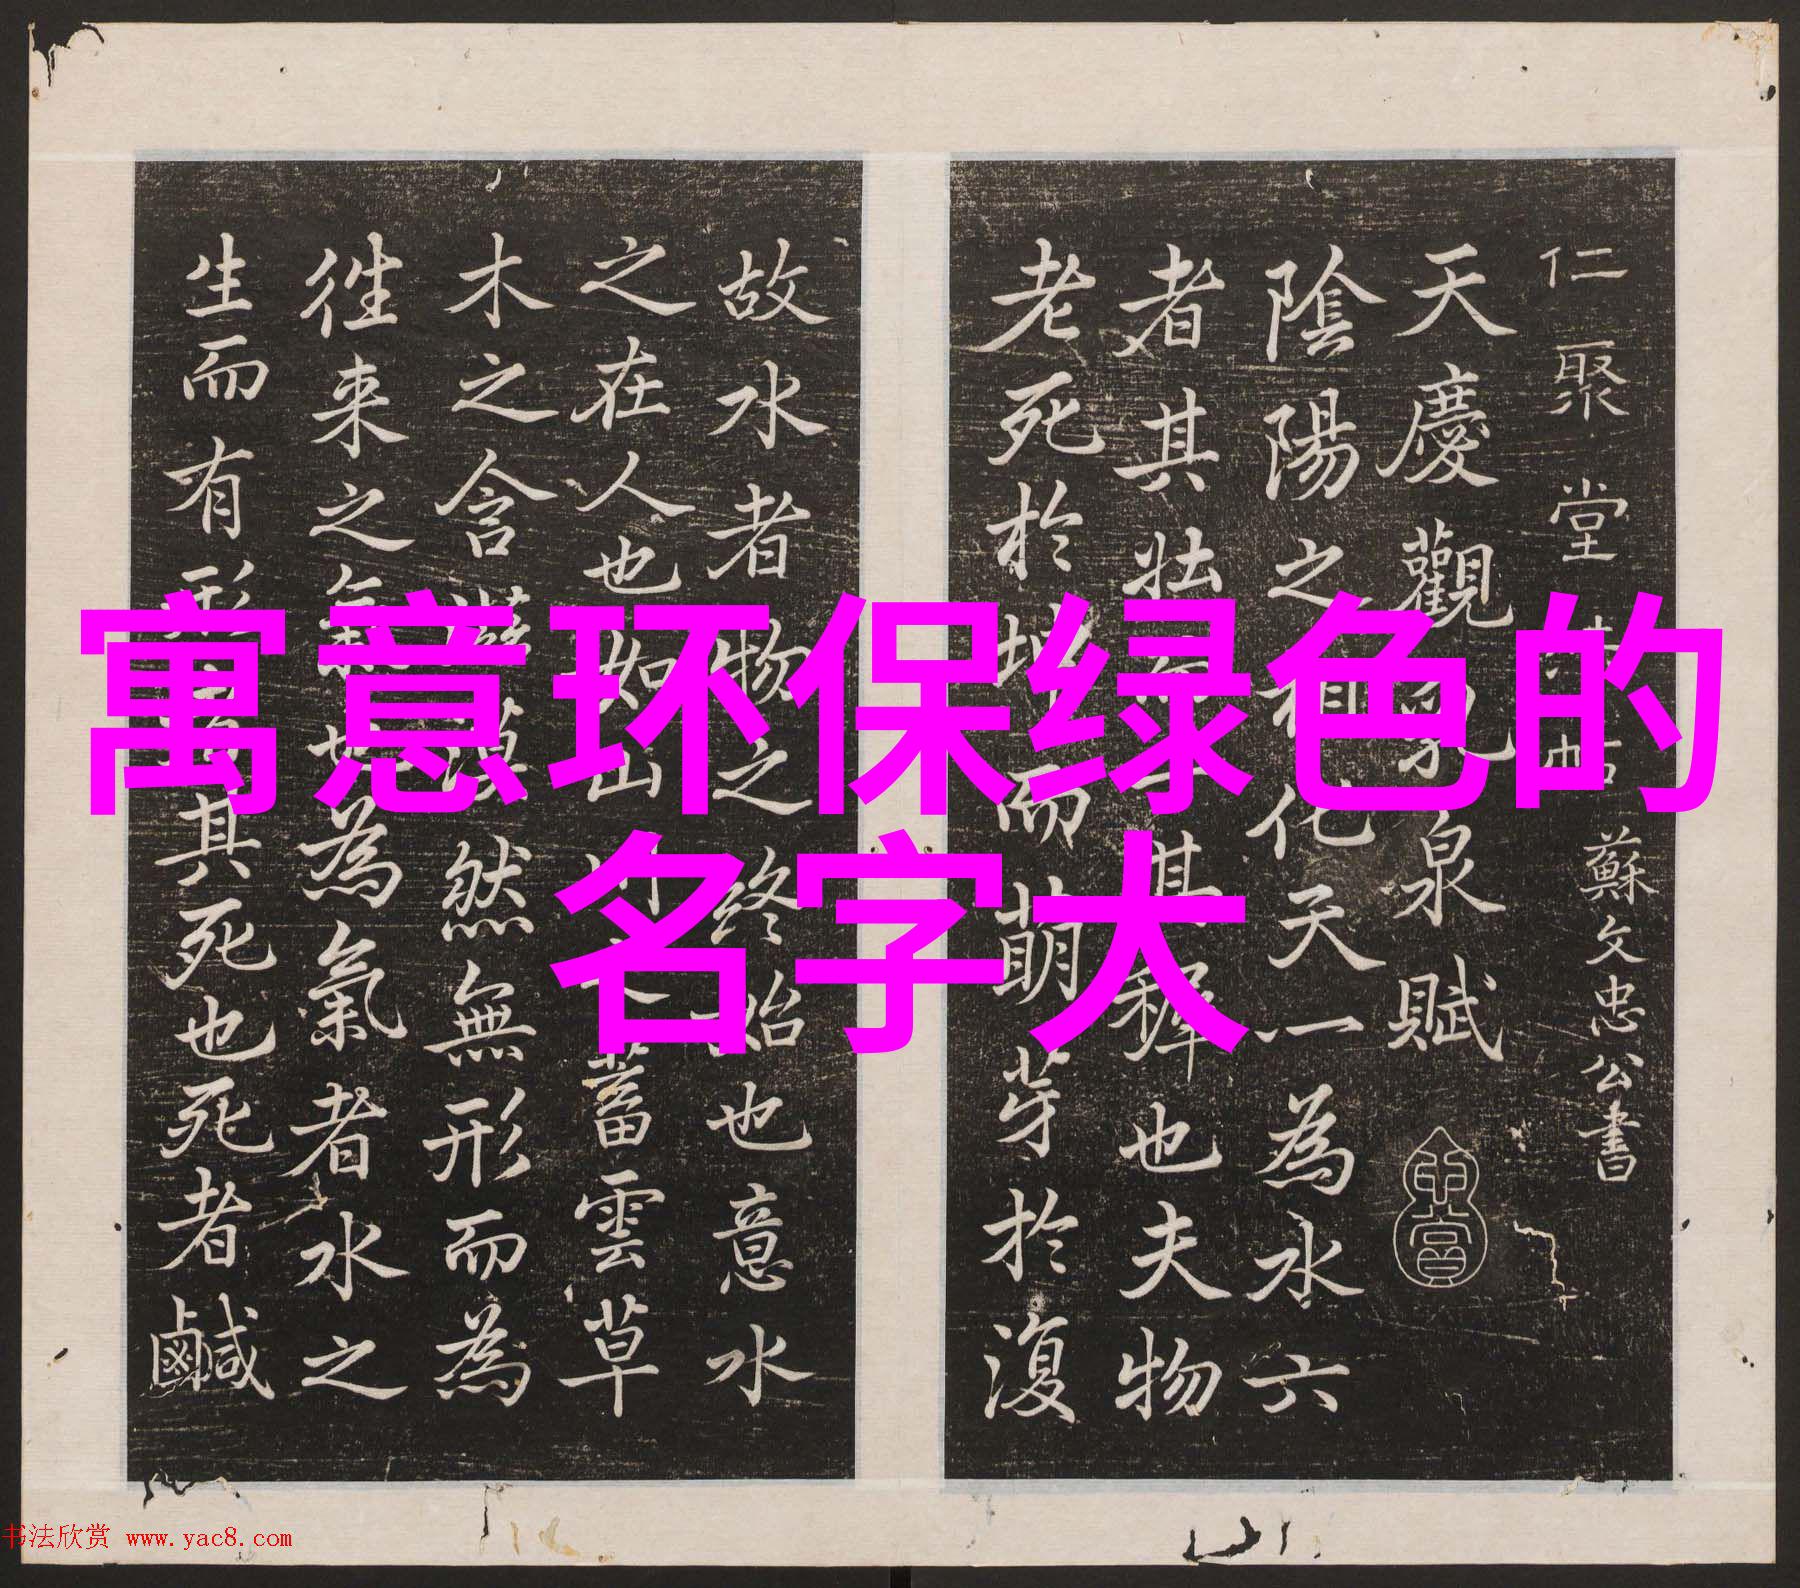 仁聚堂
蘇文忠公書
天慶觀乳泉賦
陰陽之相化天一為水六
者其壯
其穉也夫物
老死於
而萌芽於復
故水者物之終始也意水
之在人也如山
蓄雲草
木之含
漠然無形而為
徃来之氣也為氣者水之
生而有形
其死也死者鹹
寓意环保绿色的
名字大
书法欣赏 www.yac8.com